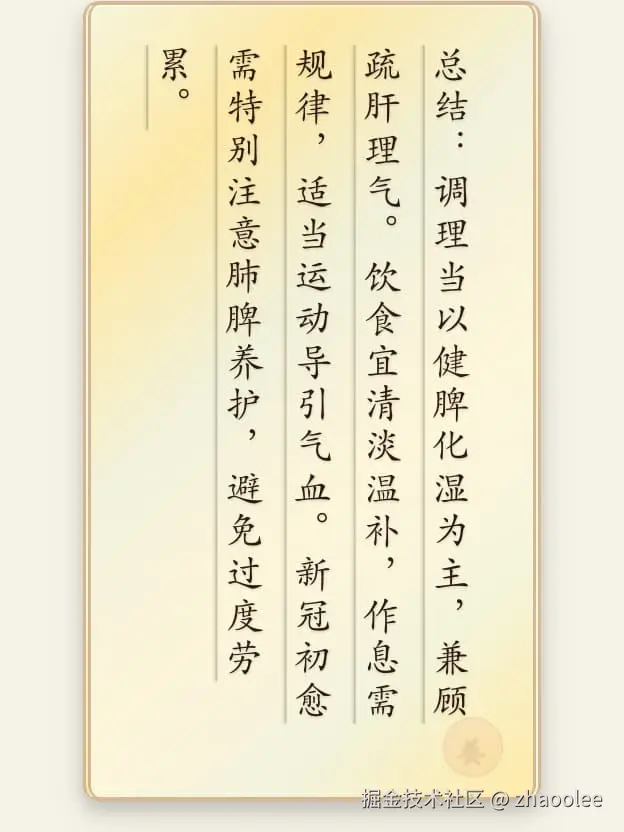 总结：调理当以健脾化湿为主，兼顾
疏肝理气。饮食宜清淡温补，作息需
规律，适当运动导引气血。新冠初愈
需特别注意肺脾养护，避免过度劳
累。
养
掘金技术社区 @ zhaoolee